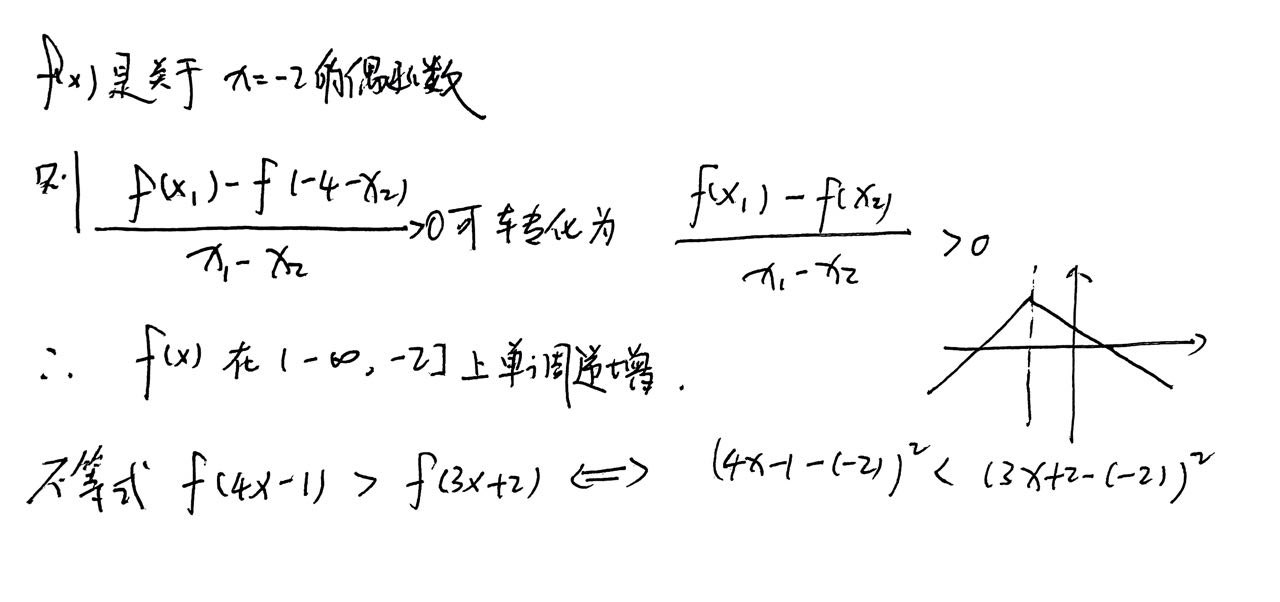 f(x)是关于 x=-2的偶函数
则 \frac{f(x₁)-f(-4-x₂)}{x₁-x₂}>0可转化为 \frac{f(x₁)-f(x₂)}{x₁-x₂} >0
∴ f(x) 在 (-∞,-2]上单调递增.
不等式 f(4x-1) > f(3x+2) ⟺ (4x-1-(-2))² < (3x+2-(-2))²